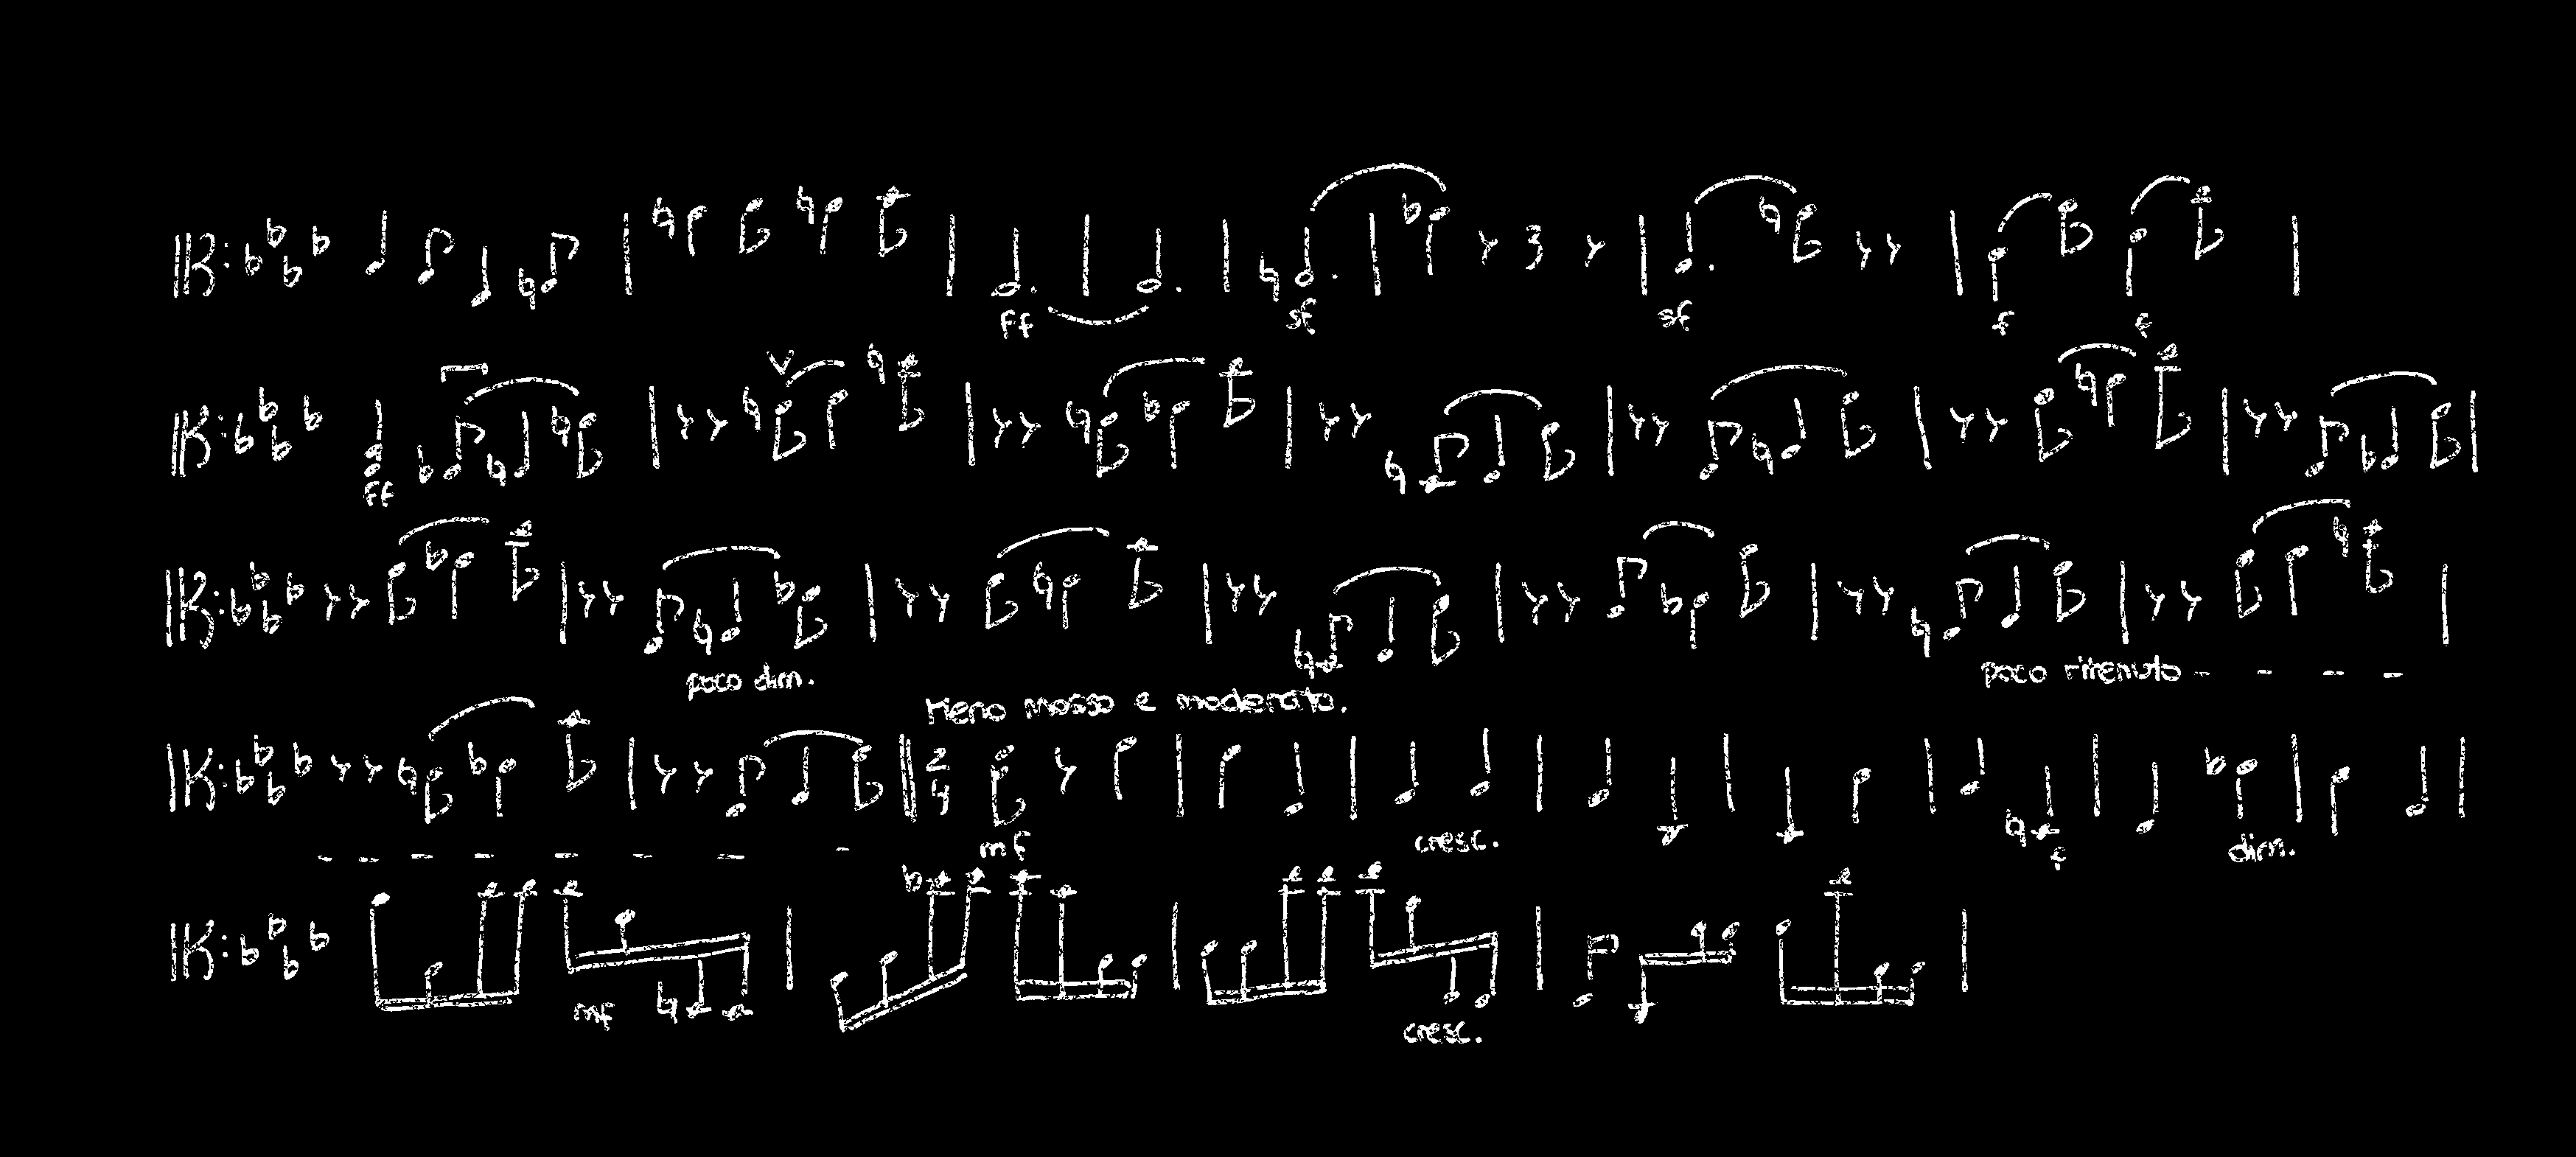 ff sf sf f f
ff
poco dim. poco ritenuto - - - -
Meno mosso e moderato.
2/4 mf cresc. f dim.
mf cresc.